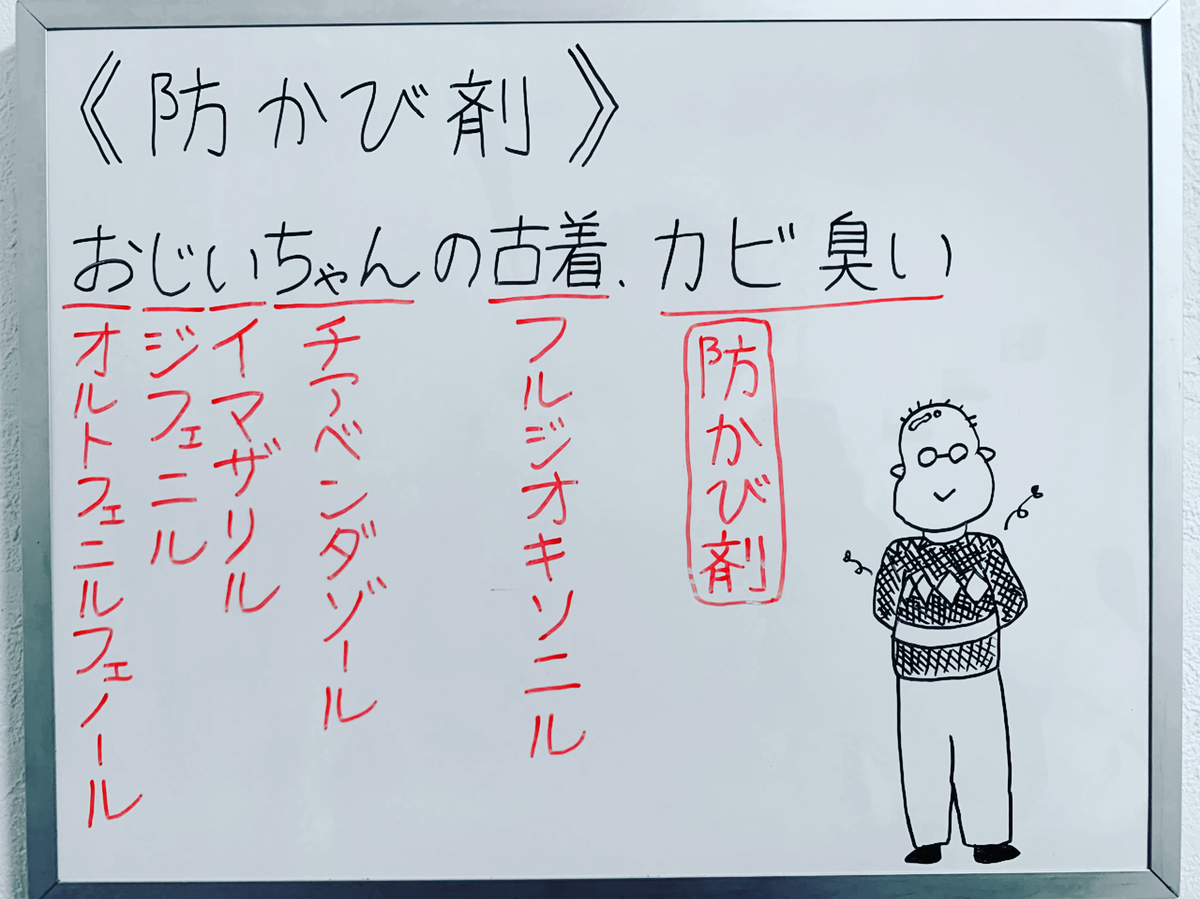 《防かび剤》
おじいちゃんの古着、カビ臭い
オルトフェニルフェノール
ジフェニル
イマザリル
チアベンダゾール
フルジオキソニル
防かび剤